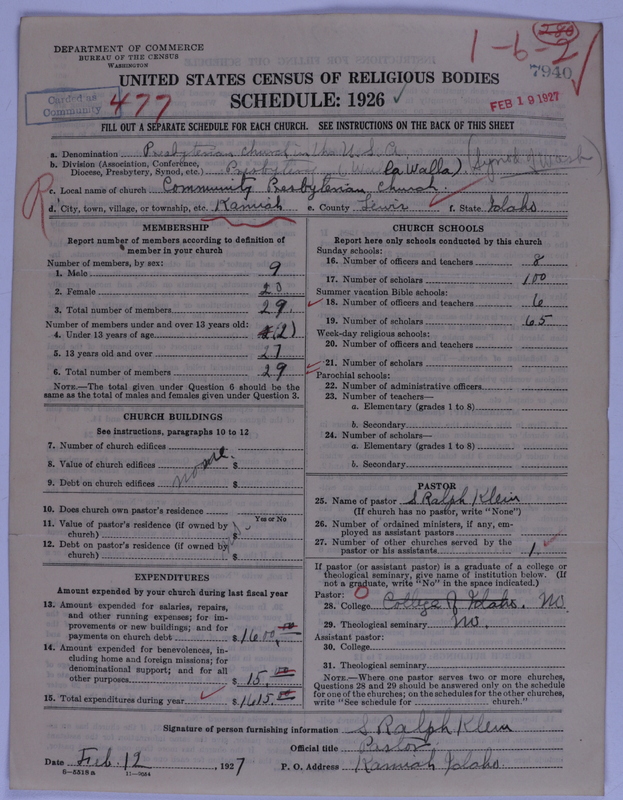 DEPARTMENT OF COMMERCE
BUREAU OF THE CENSUS
WASHINGTON
1-6-2
280
7940
UNITED STATES CENSUS OF RELIGIOUS BODIES
SCHEDULE: 1926
Carded as
Community
477
FEB 19 1927
FILL OUT A SEPARATE SCHEDULE FOR EACH CHURCH. SEE INSTRUCTIONS ON THE BACK OF THIS SHEET
a. Denomination Presbyterian Church in the U.S.A.
b. Division (Association, Conference, Diocese, Presbytery, Synod, etc.) Presbytery (Walla Walla) (Synod of Wash)
R
c. Local name of church Community Presbyterian Church.
d. City, town, village, or township, etc. Kamiah e. County Lewis f. State Idaho
MEMBERSHIP
Report number of members according to definition of member in your church
Number of members, by sex:
1. Male 9
2. Female 20
3. Total number of members 29.
Number of members under and over 13 years old:
4. Under 13 years of age (2)
5. 13 years old and over 27
6. Total number of members 29
NOTE.—The total given under Question 6 should be
same as the total of males and females given under Question 3.
CHURCH BUILDINGS
See instructions, paragraphs 10 to 12
7. Number of church edifices
8. Value of church edifices $
none
9. Debt on church edifices $
10. Does church own pastor's residence
Yes or No
11. Value of pastor's residence (if owned by
church) $
12. Debt on pastor's residence (if owned by
church) $
EXPENDITURES
Amount expended by your church during last fiscal year
13. Amount expended for salaries, repairs,
and other running expenses; for im-
provements or new buildings; and for
payments on church debt $1600.00
14. Amount expended for benevolences, in-
cluding home and foreign missions; for
denominational support; and for all
other purposes $15.00
15. Total expenditures during year $1615.00
CHURCH SCHOOLS
Report here only schools conducted by this church
Sunday schools:
16. Number of officers and teachers 8
17. Number of scholars 100
Summer vacation Bible schools:
18. Number of officers and teachers 6
19. Number of scholars 65
Week-day religious schools:
20. Number of officers and teachers
21. Number of scholars
Parochial schools:
22. Number of administrative officers
23. Number of teachers—
a. Elementary (grades 1 to 8)
b. Secondary
24. Number of scholars—
a. Elementary (grades 1 to 8)
b. Secondary
PASTOR
25. Name of pastor S Ralph Klein
(If church has no pastor, write "None")
26. Number of ordained ministers, if any, em-
ployed as assistant pastors
27. Number of other churches served by the
pastor or his assistants 1.
If pastor (or assistant pastor) is a graduate of a college or
theological seminary, give name of institution below. (If
not a graduate, write "No" in the space indicated.)
Pastor: 0
28. College College of Idaho. No
29. Theological seminary No.
Assistant pastor:
30. College
31. Theological seminary
NOTE.—Where one pastor serves two or more churches,
Questions 28 and 29 should be answered only on the schedule
for one of the churches; on the schedules for the other churches,
write "See schedule for church."
Signature of person furnishing information S Ralph Klein
Official title Pastor
Date Feb. 12, 1927 P. O. Address Kamiah Idaho.
6-5518a 11-9564